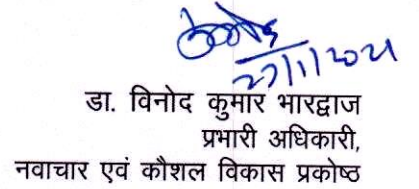 27/11/2021
डा. विनोद कुमार भारद्वाज
प्रभारी अधिकारी,
नवाचार एवं कौशल विकास प्रकोष्ठ